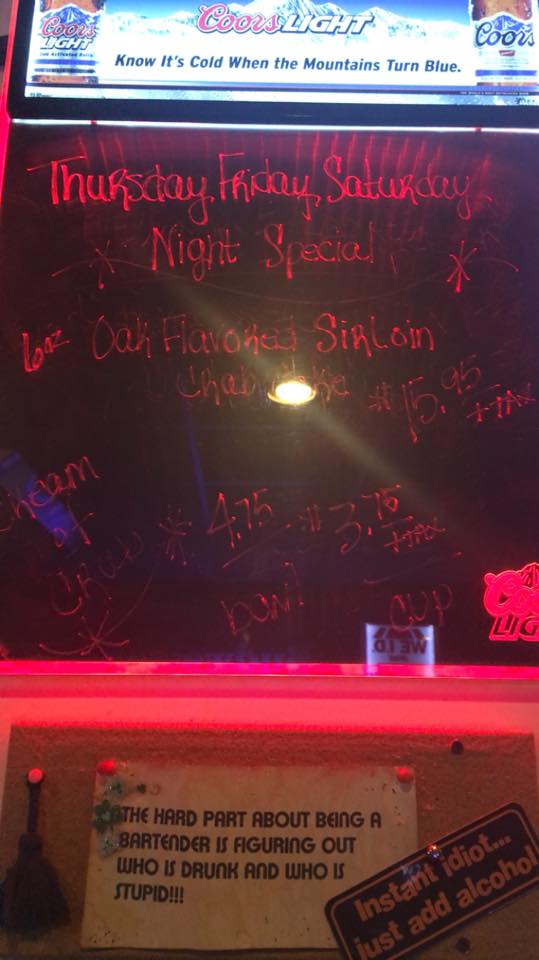 Coors LIGHT
Coors LIGHT
Coors
Know It's Cold When the Mountains Turn Blue.
Thursday, Friday, Saturday
Night Special
6oz Oak Flavored Sirloin
Crab Cake $15.95 + TAX
Cream of Crab
$4.75 bowl
$3.75 + TAX cup
Coors LIG
WE I.D.
THE HARD PART ABOUT BEING A
BARTENDER IS FIGURING OUT
WHO IS DRUNK AND WHO IS
STUPID!!!
Instant idiot...
just add alcohol